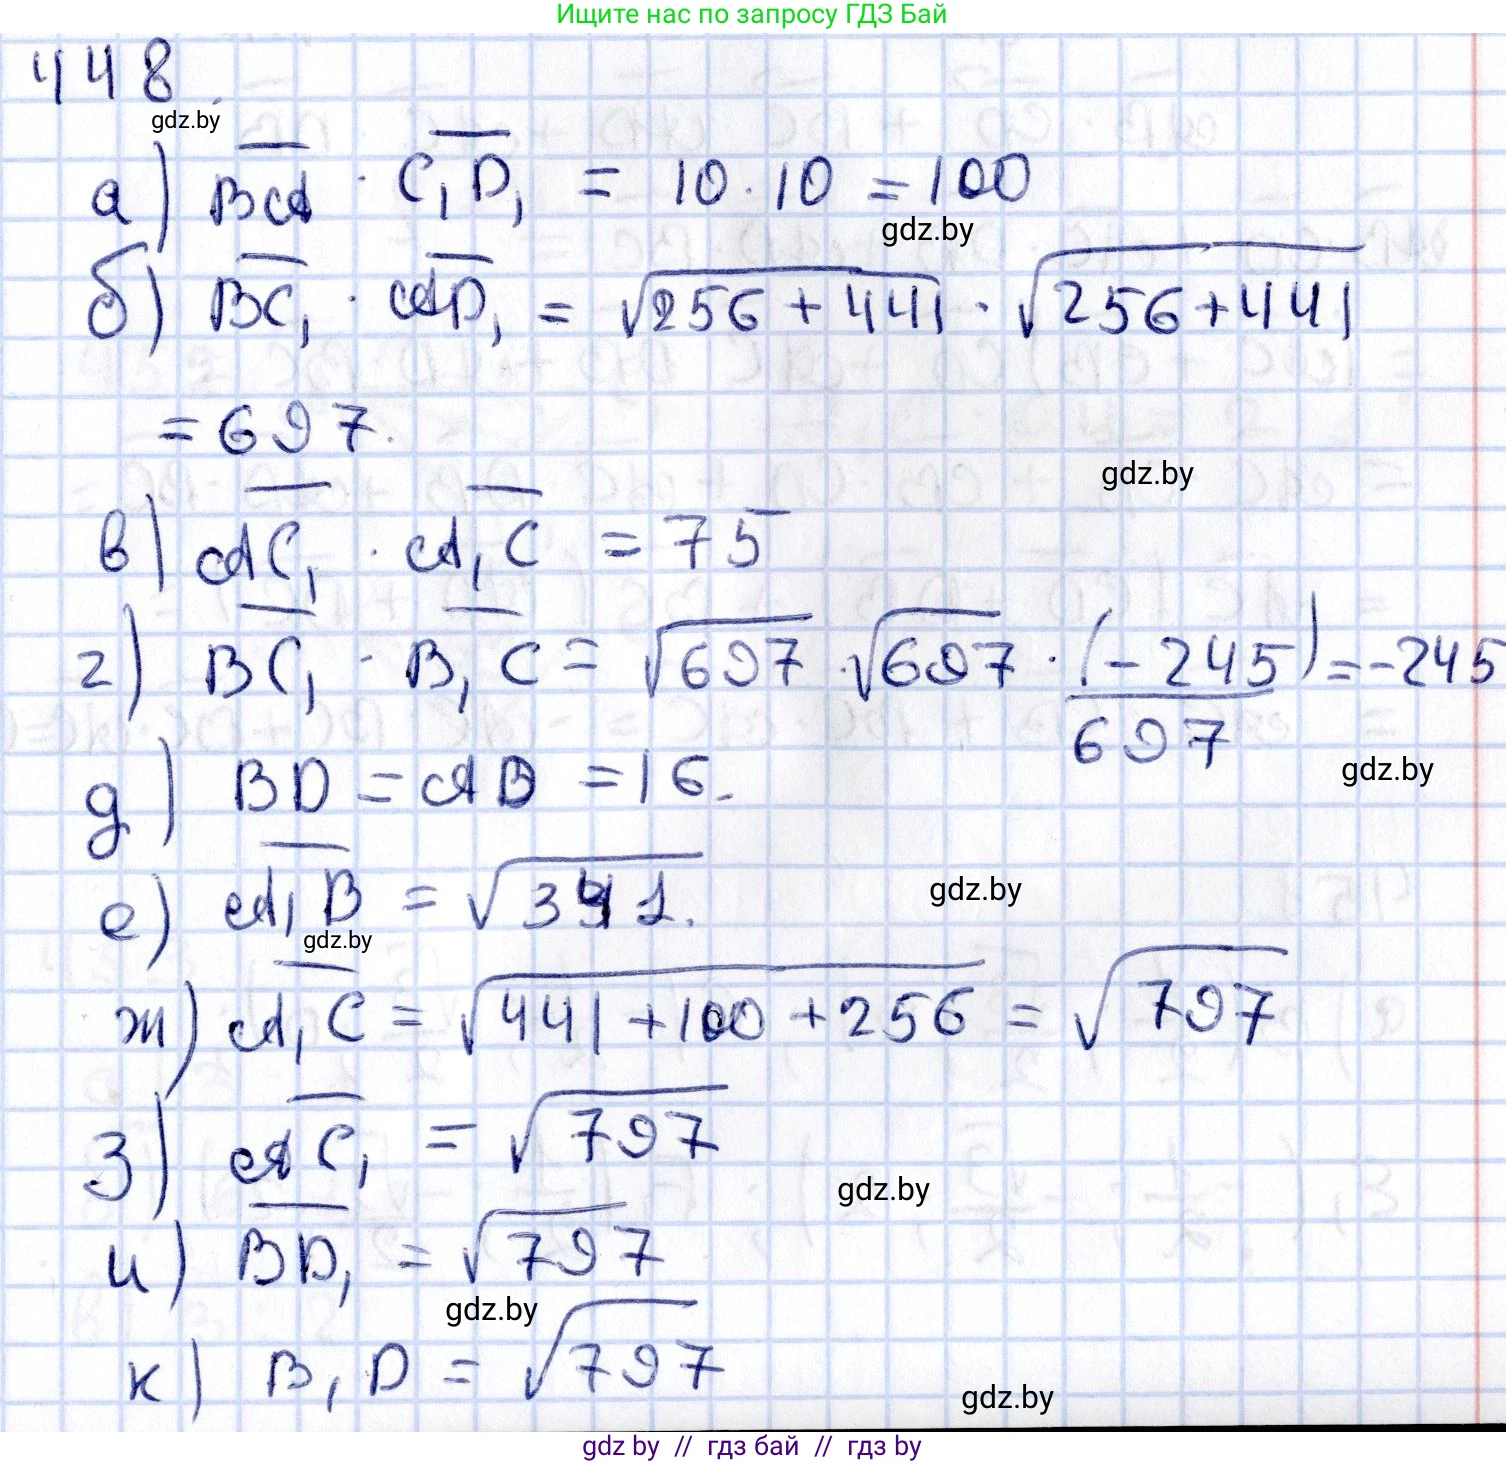 Ищите нас по запросу ГДЗ Бай
448.
gdz.by
а) BA · C₁D₁ = 10 · 10 = 100
gdz.by
б) BC₁ · AD₁ = √256 + 441 · √256 + 441
= 697.
gdz.by
в) AC₁ · A₁C = 75
г) BC₁ · B₁C = √697 · √697 · (-245)/697 = -245
gdz.by
д) BD = AB = 16.
е) A₁B = √341.
gdz.by
gdz.by
ж) A₁C = √441 + 100 + 256 = √797
з) AC₁ = √797
gdz.by
и) BD₁ = √797
gdz.by
к) B₁D = √797
gdz.by
gdz by // гдз бай // гдз by